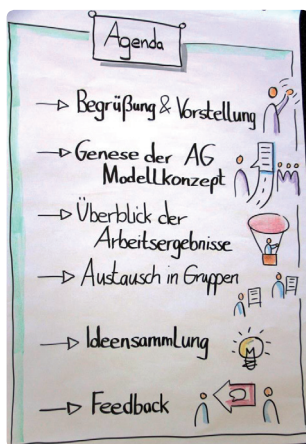 Agenda
Begrüßung & Vorstellung
Genese der AG
Modellkonzept
Überblick der
Arbeitsergebnisse
Austausch in Gruppen
Ideensammlung
Feedback